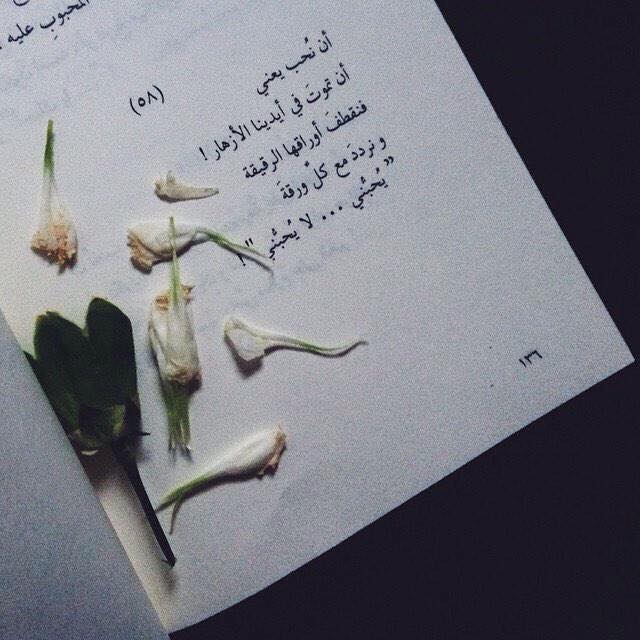 المحبوب عليه
(٥٨)
أن نُحب يعني
أن تموتَ في أيدينا الأزهار !
فنقطفَ أوراقها الرقيقة
و نرددَ مع كلِّ ورقة
"يُحبُّني ... لا يُحبُّني "!
١٣٦